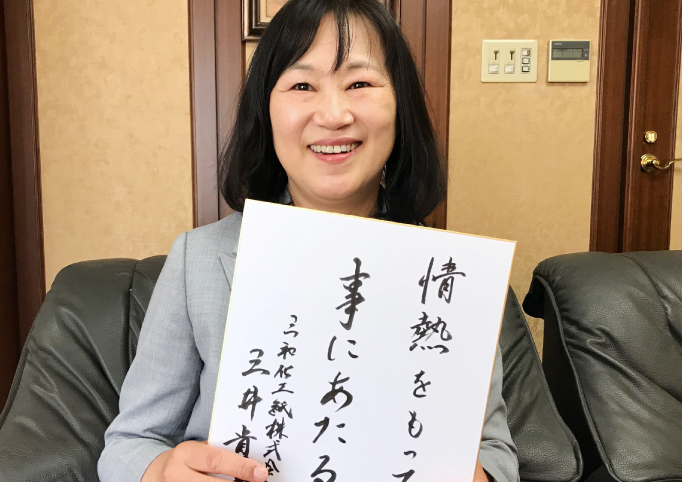 情熱をもって
事にあたる
三和化工紙株式会
三井肯